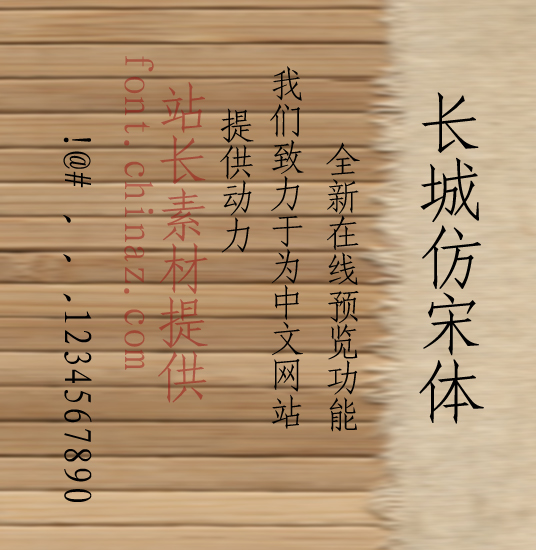 长城仿宋体
全新在线预览功能
我们致力于为中文网站
提供动力
站长素材提供
font.chinaz.com
!@# 、、、1234567890